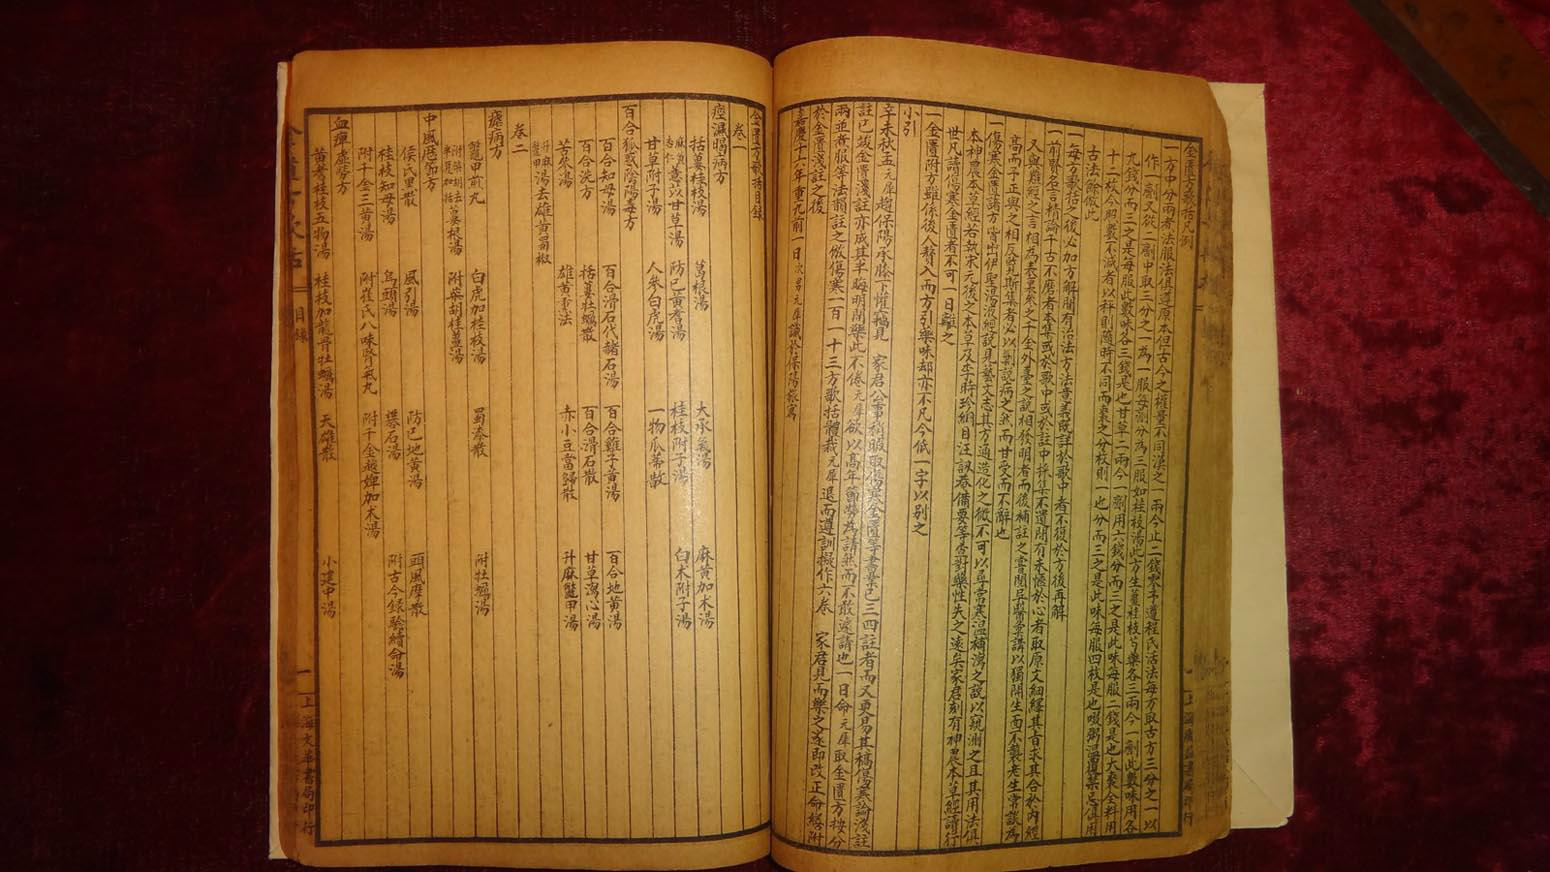 金匱方歌括凡例
一方中分兩者法服法俱遵原本但古今之權量不同漢之一兩今止二錢零予遵程氏活法每方取古方三分之一以
作一劑又從一劑中取三分之一為一服每劑分為三服如桂枝湯此方生薑桂枝芍藥各三兩今一劑此數味用各
九錢分而三之是每服此數味各三錢是也甘草二兩今一劑用六錢分而三之是此味每服二錢是也大棗全料用
十二枚今照數不減者以秤則隨時不同而棗之分枚則一也分而三之是此味每服四枚是也啜粥溫覆禁忌俱用
古法餘倣此
一每方歌括之後必加方解間有治法方法意義既詳於歌中者不復於方後再解
一前賢名言精論千古不磨者本集或於歌中或於註中採集不遺間有未愜於心者取原文細繹其旨求其合於內經
又與難經之言相為表裏參之千金外臺之說相發明者而後補註之嘗閱喜醫重講以獨開生面不襲老生常談為
高而予正與之相反蓋斯集者必以剿說病之然而甘受而不辭也
一傷寒金匱諸方皆出伊聖湯液經說見藝文志其方通造化之微不可以尋常寒溫補瀉之說以窺測之且其用法俱
本神農本草經若執宋元後之本草及李時珍綱目汪訒菴備要等查對藥性失之遠矣家君刻有神農本草經讀行
世凡讀傷寒金匱者不可一日離之
一金匱附方雖係後人贅入而方引藥味却亦不凡今低一字以別之
小引
辛未秋孟元犀趨保陽承膝下懽竊見 家君公事稍暇取傷寒金匱等書業已三四註者而又更易其稿傷寒論淺註
註已竣金匱淺註亦成其半晦明間樂此不倦元犀欲以高年節勞為請然而不敢遽請也一日命元犀取金匱方按分
兩並煮服等法韻註之倣傷寒一百一十三方歌括體裁元犀退而遵訓擬作六卷 家君見而樂之遂即改正命繕附
於金匱淺註之後
嘉慶十六年重九前一日次男元犀識於保陽旅寓
金匱方歌括目錄
卷一
痙濕暍病方
括蔞桂枝湯 葛根湯 大承氣湯 麻黃加朮湯
麻黃杏仁薏苡甘草湯 防己黃耆湯 桂枝附子湯 白朮附子湯
甘草附子湯 人參白虎湯 一物瓜蒂散
百合狐惑陰陽毒方
百合知母湯 百合滑石代赭石湯 百合雞子黃湯 百合地黃湯
百合洗方 括蔞牡蠣散 百合滑石散 甘草瀉心湯
苦參湯 雄黃熏法 赤小豆當歸散 升麻鼈甲湯
升麻鼈甲湯去雄黃蜀椒
卷二
瘧病方
鼈甲煎丸 白虎加桂枝湯 蜀漆散 附牡蠣湯
附柴胡去半夏加括蔞根湯 附柴胡桂薑湯
中風歷節方
侯氏黑散 風引湯 防己地黃湯 頭風摩散
桂枝知母湯 烏頭湯 礬石湯 附古今錄驗續命湯
附千金三黃湯 附崔氏八味腎氣丸 附千金越婢加朮湯
血痺虛勞方
黃耆桂枝五物湯 桂枝加龍骨牡蠣湯 天雄散 小建中湯
目錄
一
上海文華書局印行